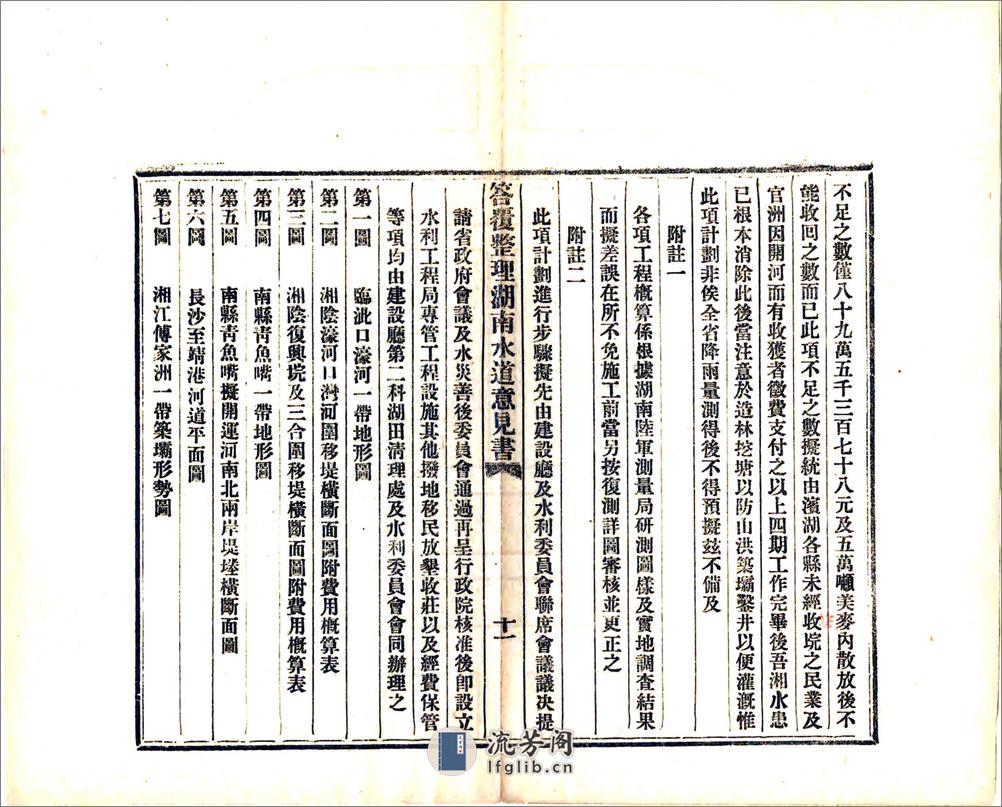 不足之數僅八十九萬五千三百七十八元及五萬噸美麥內散放後不
能收回之數而已此項不足之數擬統由濱湖各縣未經收垸之民業及
官洲因開河而有收獲者徵費支付之以上四期工作完畢後吾湘水患
已根本消除此後當注意於造林挖塘以防山洪築壩鑿井以便灌漑惟
此項計劃非俟全省降雨量測得後不得預擬玆不備及
附註一
各項工程概算係根據湖南陸軍測量局研測圖樣及實地調査結果
而擬差誤在所不免施工前當另按復測詳圖審核並更正之
附註二
此項計劃進行步驟擬先由建設廳及水利委員會聯席會議議決提
答覆整理湖南水道意見書
十一
請省政府會議及水災善後委員會通過再呈行政院核准後卽設立
水利工程局專管工程設施其他撥地移民放墾收莊以及經費保管
等項均由建設廳第二科湖田淸理處及水利委員會會同辦理之
第一圖 臨泚口濠河一帶地形圖
第二圖 湘陰濠河口灣河圍移堤橫斷面圖附費用概算表
第三圖 湘陰復興垸及三合圍移堤橫斷面圖附費用概算表
第四圖 南縣靑魚嘴一帶地形圖
第五圖 南縣靑魚嘴擬開運河南北兩岸堤塍橫斷面圖
第六圖 長沙至靖港河道平面圖
第七圖 湘江傅家洲一帶築壩形勢圖
流芳阁
lfglib.cn